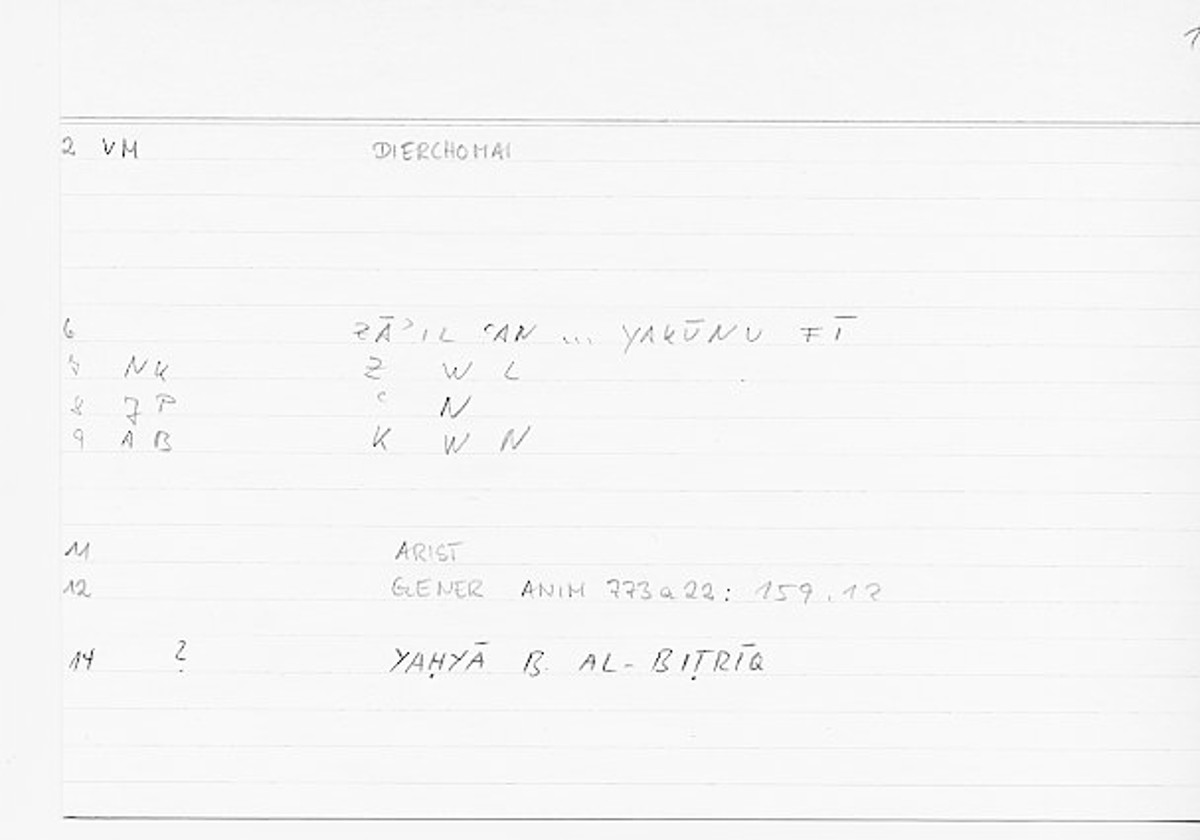 1
2 VM DIERCHOMAI
6 ZĀʾIL ʿAN ... YAKŪNU FĪ
7 NK Z W L
8 JP ʿ N
9 AB K W N
11 ARIST
12 GENER ANIM 773a22: 159.17
14 ? YAḤYĀ B. AL-BIṬRĪQ